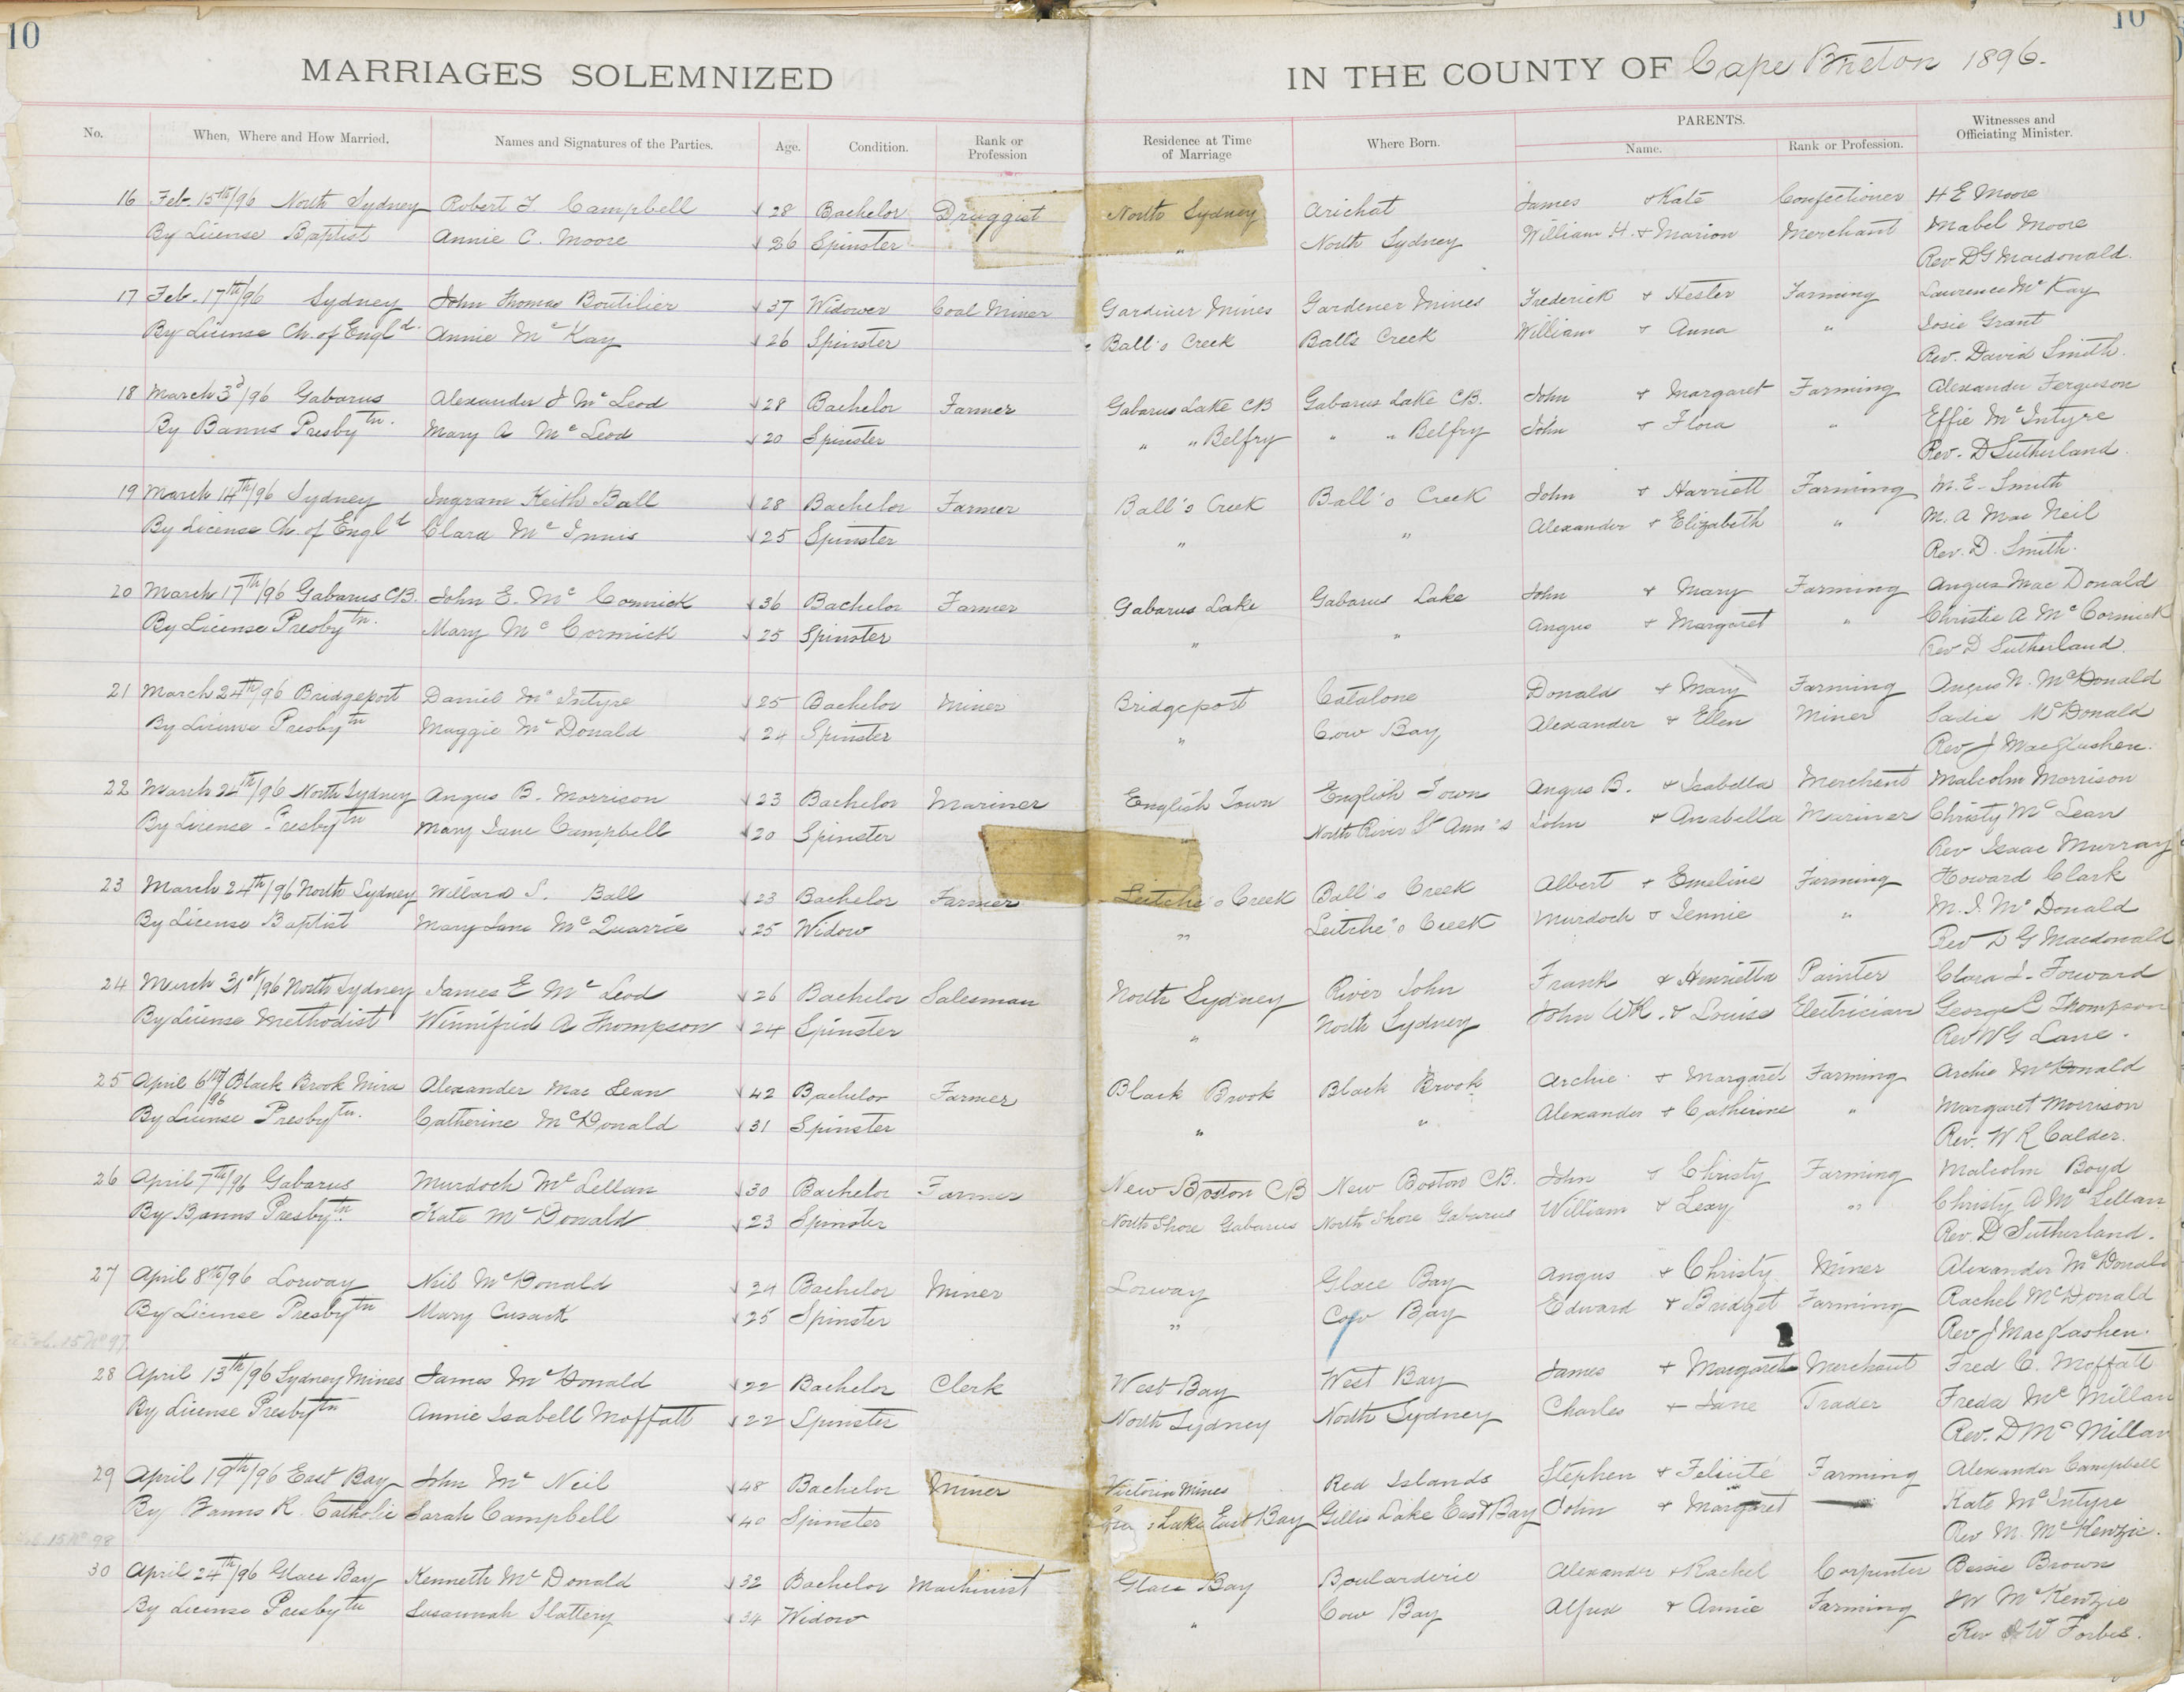 10
10
MARRIAGES SOLEMNIZED IN THE COUNTY OF Cape Breton 1896.
No. When, Where and How Married. Names and Signatures of the Parties. Age. Condition. Rank or Profession Residence at Time of Marriage Where Born. PARENTS. Name. Rank or Profession. Witnesses and Officiating Minister.
16 Feb. 15th/96 North Sydney Robert F. Campbell 28 Bachelor Druggist North Sydney Arichat James & Kate Confectioner H E Moore
By License Baptist Annie C. Moore 26 Spinster " North Sydney William H. & Marion Merchant Mabel Moore
Rev. D G Macdonald.
17 Feb. 17th/96 Sydney John Thomas Boutilier 37 Widower Coal Miner Gardiner Mines Gardener Mines Frederick & Hester Farming Laurence Mc Kay
By License Ch. of Engld. Annie Mc Kay 26 Spinster Ball's Creek Balls Creek William & Anna " Josie Grant
Rev. David Smith.
18 March 3d/96 Gabarus Alexander J Mc Leod 28 Bachelor Farmer Gabarus Lake CB Gabarus Lake C.B. John & Margaret Farming Alexander Ferguson
By Banns Presbytn. Mary A Mc Leod 20 Spinster " " Belfry " " Belfry John & Flora " Effie Mc Intyre
Rev. D Sutherland.
19 March 14th/96 Sydney Ingram Keith Ball 28 Bachelor Farmer Ball's Creek Ball's Creek John & Harriett Farming M. E. Smith
By License Ch. of Engld Clara Mc Innis 25 Spinster " " Alexander & Elizabeth " M. A Mac Neil
Rev. D. Smith.
20 March 17th/96 Gabarus C.B. John E. Mc Cormick 36 Bachelor Farmer Gabarus Lake Gabarus Lake John & Mary Farming Angus Mac Donald
By License Presbytn. Mary Mc Cormick 25 Spinster " " Angus & Margaret " Christie A Mc Cormick
Rev D Sutherland.
21 March 24th/96 Bridgeport Daniel Mc Intyre 25 Bachelor Miner Bridgeport Catalone Donald & Mary Farming Angus N. McDonald
By License Presbytn Maggie Mc Donald 24 Spinster " Cow Bay Alexander & Ellen Miner Sadie McDonald
Rev J MacGlashen.
22 March 24th/96 North Sydney Angus B. Morrison 23 Bachelor Mariner English Town English Town Angus B. & Isabella Merchant Malcolm Morrison
By License Presbytn Mary Jane Campbell 20 Spinster " North River St Ann's John & Anabella Mariner Christy Mc Lean
Rev Isaac Murray
23 March 24th/96 North Sydney Willard S. Ball 23 Bachelor Farmer Leitche's Creek Ball's Creek Albert & Emeline Farming Howard Clark
By License Baptist Mary Jane Mc Quarrie 25 Widow " Leitche's Creek Murdoch & Jennie " M. J. Mc Donald
Rev D G Macdonald
24 March 31st/96 North Sydney James E Mc Leod 26 Bachelor Salesman North Sydney River John Frank & Henrietta Painter Clara J. Forward
By License Methodist Winnifrid A Thompson 24 Spinster " North Sydney John WR. & Louise Electrician George E Thompson
Rev W G Lane.
25 April 6th/96 Black Brook Mira Alexander Mac Lean 42 Bachelor Farmer Black Brook Black Brook Archie & Margaret Farming Archie McDonald
By License Presbytn. Catherine McDonald 31 Spinster " " Alexander & Catherine " Margaret Morrison
Rev. W R Calder.
26 April 7th/96 Gabarus Murdoch Mc Lellan 30 Bachelor Farmer New Boston CB New Boston C.B. John & Christy Farming Malcolm Boyd
By Banns Presbytn. Kate Mc Donald 23 Spinster North Shore Gabarus North Shore Gabarus William & Lexy " Christy A Mc Lellan
Rev. D Sutherland.
27 April 8th/96 Lorway Neil McDonald 24 Bachelor Miner Lorway Glace Bay Angus & Christy Miner Alexander McDonald
By License Presbytn Mary Cusack 25 Spinster " Cow Bay Edward & Bridget Farming Rachel McDonald
Rev J MacGlashen.
28 April 13th/96 Sydney Mines James McDonald 22 Bachelor Clerk West Bay West Bay James & Margaret Merchant Fred C. Moffatt
By License Presbytn Annie Isabell Moffatt 22 Spinster North Sydney North Sydney Charles & Jane Trader Freda Mc Millan
Rev. D Mc Millan
29 April 19th/96 East Bay John Mc Neil 48 Bachelor Miner Victoria Mines Red Islands Stephen & Felicité Farming Alexander Campbell
By Banns R. Catholic Sarah Campbell 40 Spinster Lake East Bay Gillis Lake East Bay John & Margaret — Kate McIntyre
Rev M. McKenzie.
30 April 24th/96 Glace Bay Kenneth Mc Donald 32 Bachelor Machinist Glace Bay Boularderie Alexander & Rachel Carpenter Bessie Brown
By License Presbytn Susannah Slattery 34 Widow " Cow Bay Alfred & Annie Farming W McKenzie
Rev W Forbes.